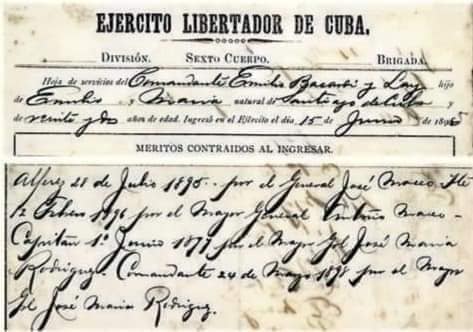 EJERCITO LIBERTADOR DE CUBA.
DIVISIÓN. SEXTO CUERPO. BRIGADA.
Hoja de servicios del Comandante Emilio Bacardí y Lay hijo
de Emilio y María natural de Santiago de Cuba y
de veinte y dos años de edad. Ingresó en el Ejército el día 15 de Junio de 1895
MERITOS CONTRAIDOS AL INGRESAR.
Alferez 28 de Julio 1895. por el General José Maceo. Tte
12 Febrero 1896 por el Mayor General Antonio Maceo -
Capitán 1º Junio 1897 por el Mayor Gral José María
Rodriguez. Comandante 24 de Mayo 1898 por el Mayor
Gral José María Rodriguez.